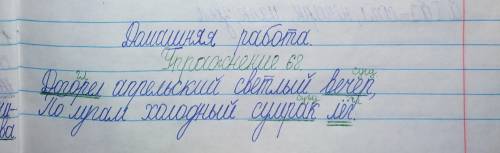 Домашняя работа.
Упражнение 68.
Догорел апрельский светлый вечер,
По лугам холодный сумрак лёг.
ва